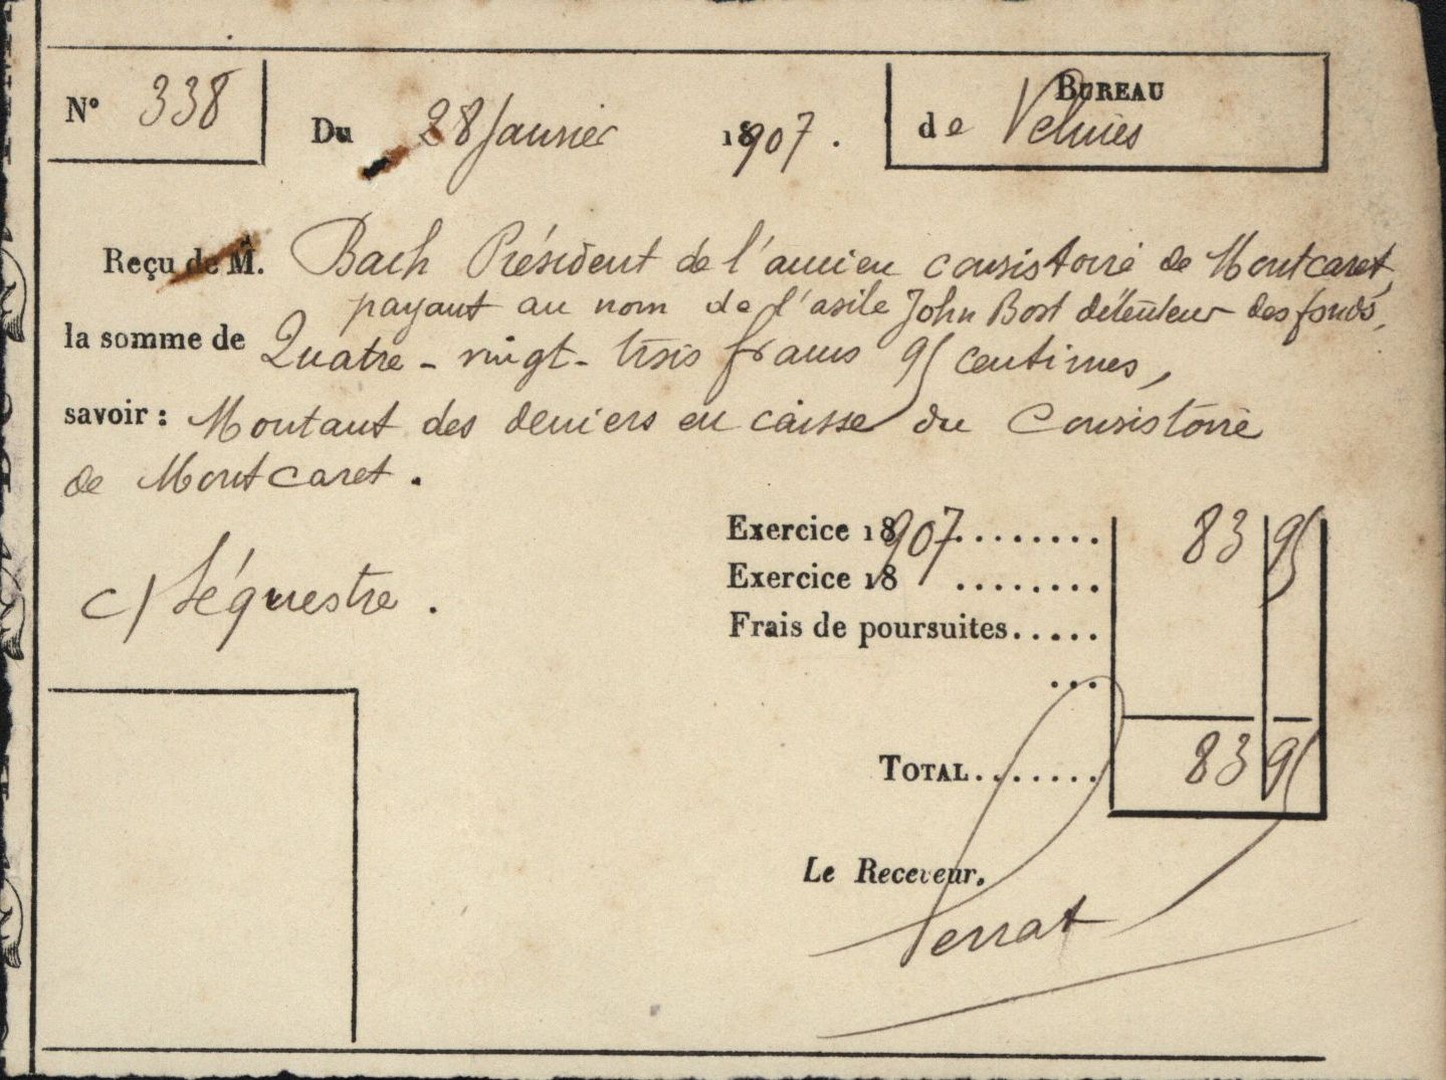 N° 338
Du 28 Janvier 1907.
BUREAU
de Velines
Reçu de M. Bach Président de l'ancien consistoire de Montcaret,
payant au nom de l'asile John Bost détenteur des fonds,
la somme de Quatre-vingt-trois francs 95 centimes,
savoir : Montant des deniers en caisse du Consistoire
de Montcaret.
c/ Séquestre.
Exercice 1907........ 83 95
Exercice 18 ........
Frais de poursuites.....
...
TOTAL....... 83 95
Le Receveur.